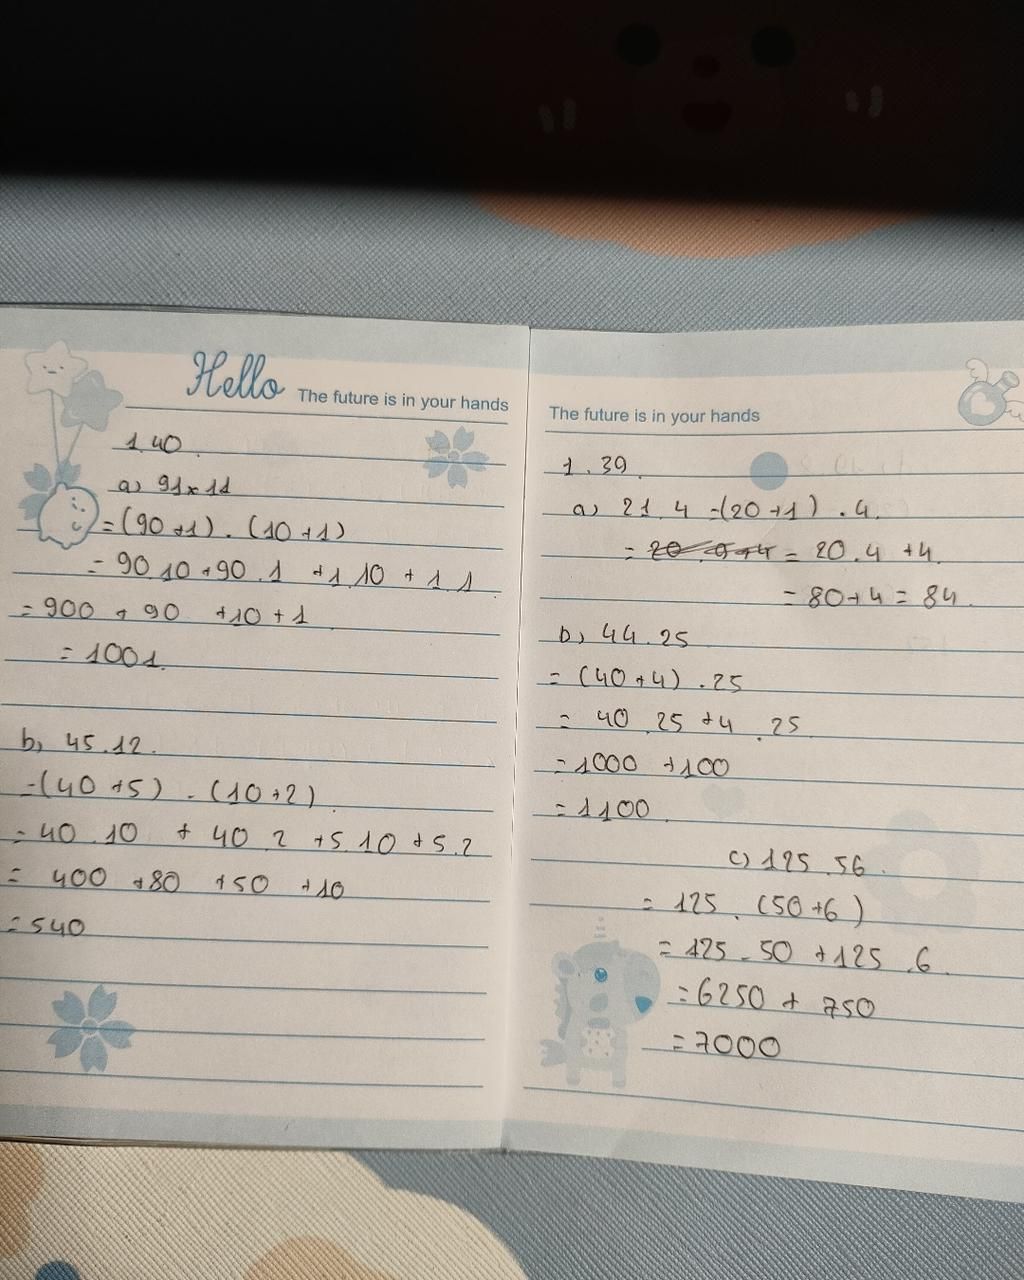 Hello The future is in your hands
1.40.
a, 91x11
=(90+1).(10+1)
= 90.10+90.1 +1.10 + 1.1
= 900 + 90 +10+1
= 1001.
b, 45.12.
=(40+5).(10+2)
= 40.10 + 40.2 +5.10+5.2
= 400 +80 +50 +10
= 540
The future is in your hands
1.39.
a, 21.4 =(20+1).4.
= = 20.4 +4.
= 80+4 = 84.
b, 44.25
= (40+4).25
= 40.25 +4.25
= 1000 +100
= 1100
c, 125.56.
= 125.(50+6)
= 125.50 +125.6.
= 6250 + 750
= 7000